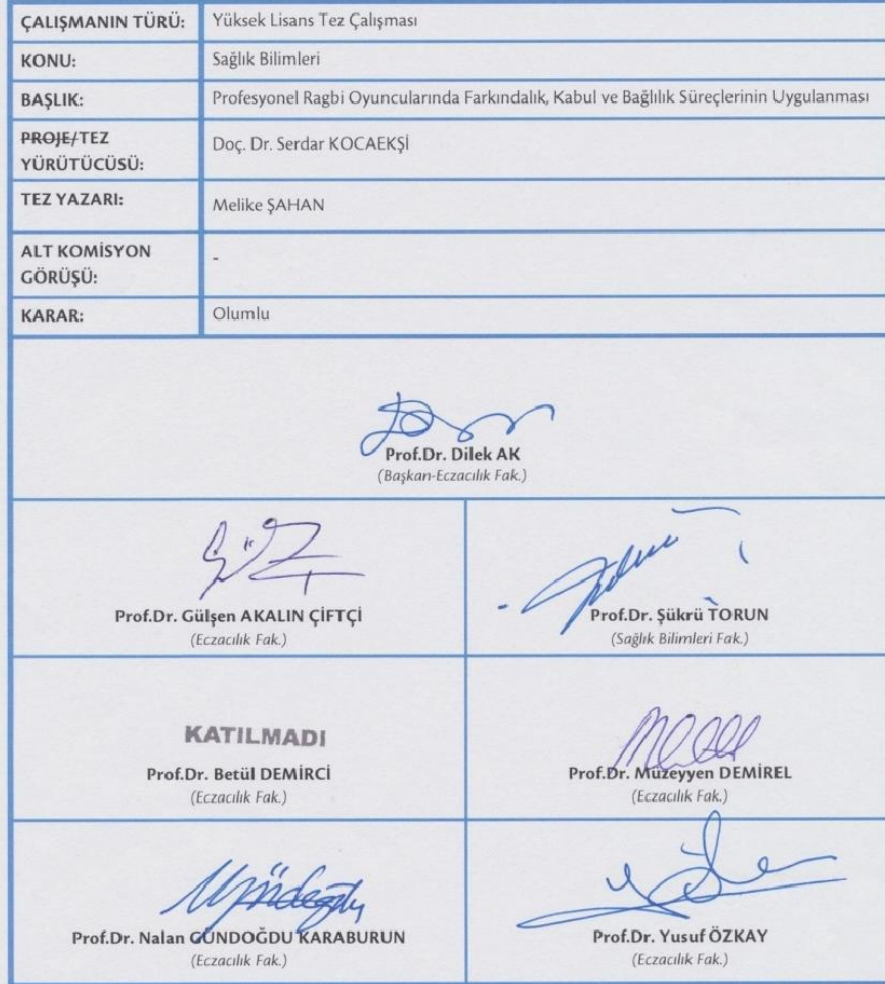 ÇALIŞMANIN TÜRÜ: Yüksek Lisans Tez Çalışması
KONU: Sağlık Bilimleri
BAŞLIK: Profesyonel Ragbi Oyuncularında Farkındalık, Kabul ve Bağlılık Süreçlerinin Uygulanması
PROJE/TEZ
YÜRÜTÜCÜSÜ: Doç. Dr. Serdar KOCAEKŞİ
TEZ YAZARI: Melike ŞAHAN
ALT KOMİSYON
GÖRÜŞÜ: -
KARAR: Olumlu
Prof.Dr. Dilek AK
(Başkan-Eczacılık Fak.)
Prof.Dr. Gülşen AKALIN ÇİFTÇİ
(Eczacılık Fak.)
Prof.Dr. Şükrü TORUN
(Sağlık Bilimleri Fak.)
KATILMADI
Prof.Dr. Betül DEMİRCİ
(Eczacılık Fak.)
Prof.Dr. Müzeyyen DEMİREL
(Eczacılık Fak.)
Prof.Dr. Nalan GÜNDOĞDU KARABURUN
(Eczacılık Fak.)
Prof.Dr. Yusuf ÖZKAY
(Eczacılık Fak.)